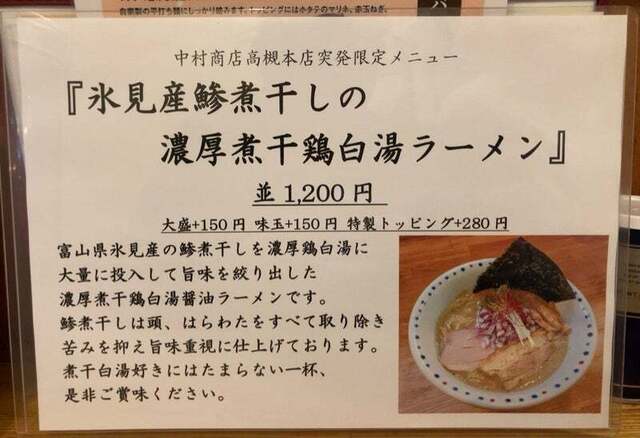 中村商店高槻本店突発限定メニュー
『氷見産鯵煮干しの
濃厚煮干鶏白湯ラーメン』
並1,200円
大盛+150円 味玉+150円 特製トッピング+280円
富山県氷見産の鯵煮干しを濃厚鶏白湯に
大量に投入して旨味を絞り出した
濃厚煮干鶏白湯醤油ラーメンです。
鯵煮干しは頭、はらわたをすべて取り除き
苦みを抑え旨味重視に仕上げております。
煮干白湯好きにはたまらない一杯、
是非ご賞味ください。